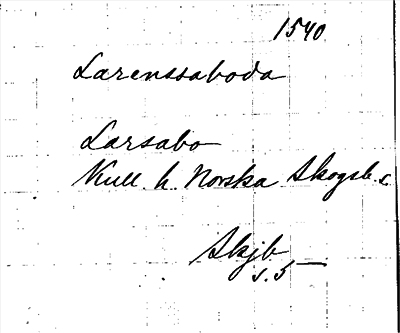 1540
Larenssaboda
Larsabo
Kull h. Norska Skogsb. s.
Skjb
s. 5